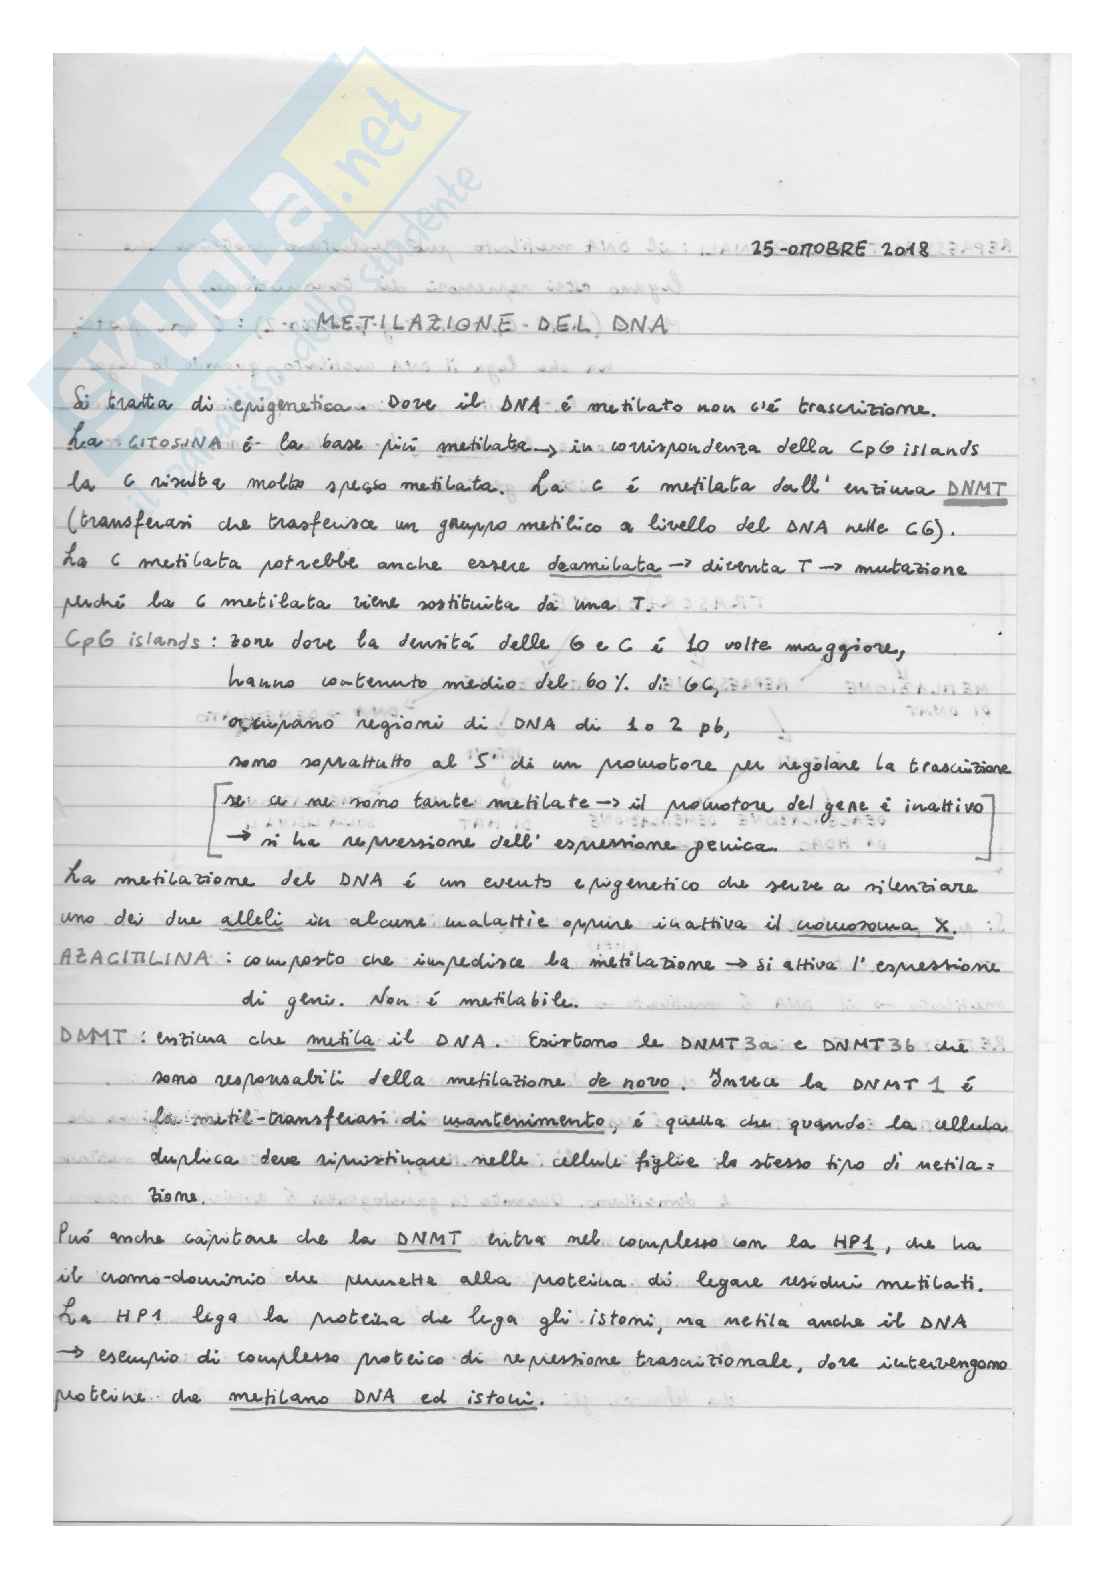 SKUOLA.net
il paradiso dello studente
25-OTTOBRE 2018
METILAZIONE DEL DNA
Si tratta di epigenetica. Dove il DNA é metilato non c'é trascrizione.
La CITOSINA é la base piú metilata → in corrispondenza della CpG islands
la C risulta molto spesso metilata. La C é metilata dall' enzima DNMT
(transferasi che trasferisce un gruppo metilico a livello del DNA nelle CG).
La C metilata potrebbe anche essere deamilata → diventa T → mutazione
perché la C metilata viene sostituita da una T.
CpG islands: zone dove la densitá delle G e C é 10 volte maggiore,
hanno contenuto medio del 60% di GC,
occupano regioni di DNA di 1 o 2 pb,
sono soprattutto al 5' di un promotore per regolare la trascrizione
[se ce ne sono tante metilate → il promotore del gene é inattivo
→ si ha repressione dell' espressione genica.]
La metilazione del DNA é un evento epigenetico che serve a silenziare
uno dei due alleli in alcune malattie oppure inattiva il cromosoma X.
AZACITILINA: composto che impedisce la metilazione → si attiva l' espressione
di geni. Non é metilabile.
DNMT: enzima che metila il DNA. Esistono le DNMT3a e DNMT3b che
sono responsabili della metilazione de novo. Invece la DNMT1 é
la metil-transferasi di mantenimento, é quella che quando la cellula
duplica deve ripristinare nelle cellule figlie lo stesso tipo di metila=
zione.
Puó anche capitare che la DNMT entra nel complesso con la HP1, che ha
il cromo-dominio che permette alla proteina di legare residui metilati.
La HP1 lega la proteina che lega gli istoni, ma metila anche il DNA
→ esempio di complesso proteico di repressione trascrizionale, dove intervengono
proteine che metilano DNA ed istoni.